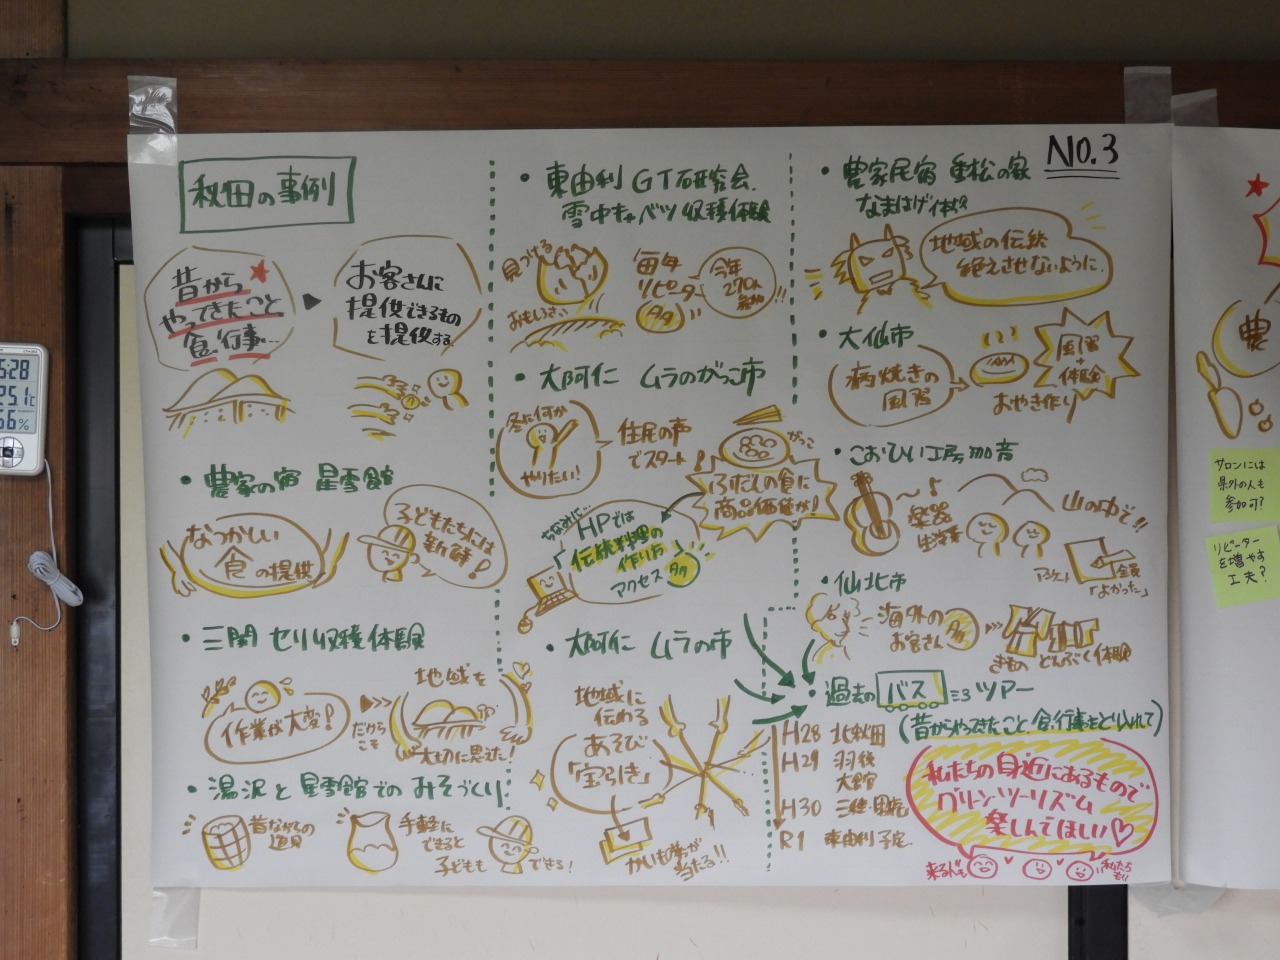 NO.3
秋田の事例
昔から
やってきたこと
食.行事…
お客さんに
提供できるもの
を提供する。
・農家の宿 星雪館
なつかしい
食の提供
子どもたちには
新鮮!
・三関 セリ収穫体験
作業が大変!
だから
こそ
地域を
大切に思えた!
・湯沢と星雪館でのみそづくり
昔ながらの
道具
手軽に
できると
子どもも
できる!
・東由利GT研究会.
雪中キャベツ収穫体験
見つける
おもしろさ
毎年
リピーター
多タ
今年
270人
参加!!
・大阿仁 ムラのがっこ市
冬に何か
やりたい!
住民の声
でスタート!
がっこ
ふだんの食に
商品価値が!
ちなみに…
HPでは
伝統料理の
作り方
アクセス多
・大阿仁 ムラの市
地域に
伝わる
あそび
「宝引き」
かいも券が
当たる!!
・農家民宿 重松の家
なまはげ体験
地域の伝統
絶えさせないように.
・大仙市
病焼きの
風習
おやき作り
風習
+
体験
・こおひい工房珈音
〜♪
楽器
生演奏
山の中で!!
アンケート
全員
「よかった」
・仙北市
海外の
お客さん多
きもの どんぶく体験
・過去のバスツアー
(昔からやってきたこと.食.行事をとり入れて)
H28 北秋田
H29 羽後
大館
H30 三種・男鹿
R1 東由利予定.
私たちの身近にあるもので
グリーン・ツーリズム
楽しんでほしい♡
来る人も
私たち
も!!
農
サロンには
県外の人も
参加可?
リピーター
を増やす
工夫?
5:28
25.1℃
56%